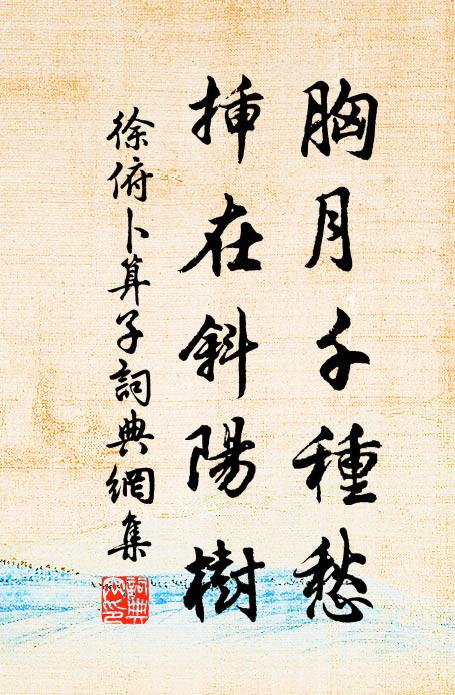 胸月千種愁
挿在斜陽樹
徐俯卜算子詞典網集